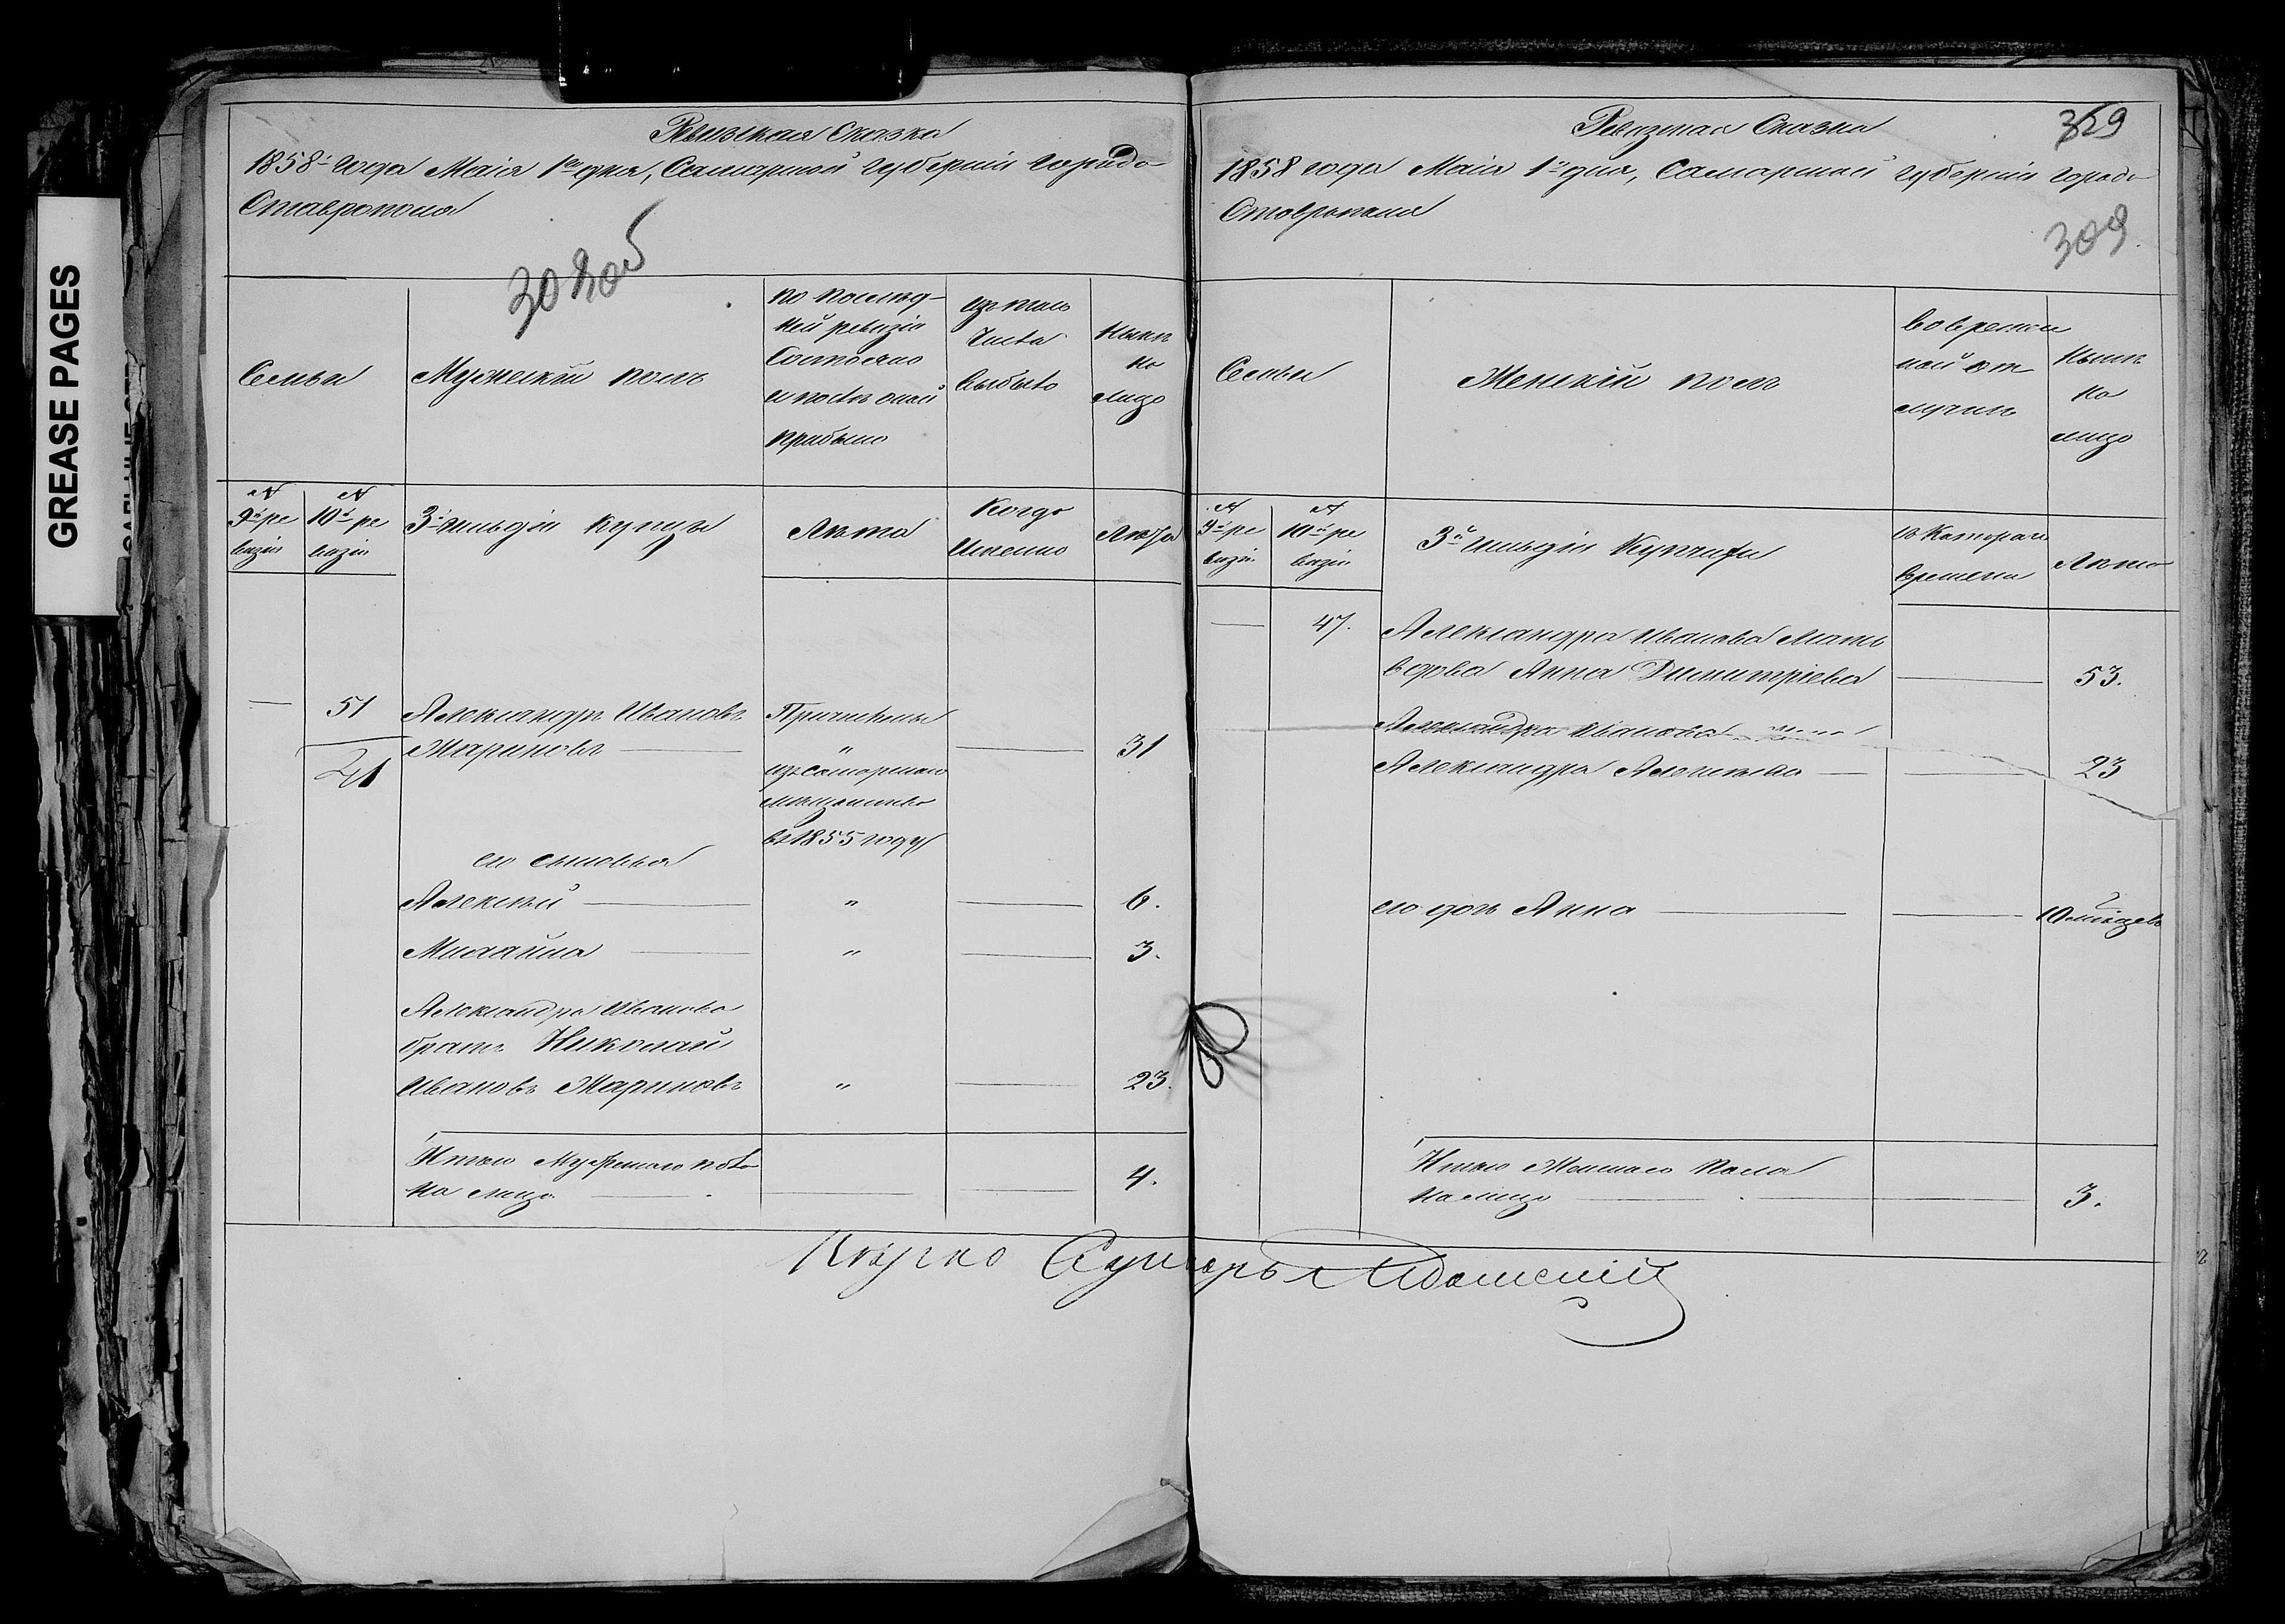 GREASE PAGES
Ревизская Сказка
1858 года Маія 1го дня, Самарской губерніи города
Ставрополя
308 об
Семьи
Мужескій полъ
по послед-
ней ревизіи
состояло
и после оной
прибыло
изъ того
числа
выбыло
ныне
на
лицо
№
9й ре
визіи
№
10й ре
визіи
3й гильдіи купцы
Лета
Когда
именно
Лета
51
41
Александръ Ивановъ
Жариновъ
Причислены
"
31
изъ самарскаго
мещанства
въ 1855 году
его сыновья
Алексей " 6.
Михаила " 3.
Александра Иванова
братъ Николай
Ивановъ Жариновъ " 23.
Итого Мужескаго пола
на лицо 4.
Ревизская Сказка
329
1858 года Маія 1го дня, Самарской губерніи города
Ставрополя
309
Семьи
Женскій полъ
во времен
ной от
лучке
ныне
на
лицо
№
9й ре
визіи
№
10й ре
визіи
3й гильдіи Купчихи
съ Котораго
времени
Лета
47.
Александра Иванова Мать
вдова Анна Димитріева 53.
Александра Иванова жена
Александра Алексеева 23
его дочь Анна 10 месяцевъ
Итого Женскаго Пола
на лицо 3.